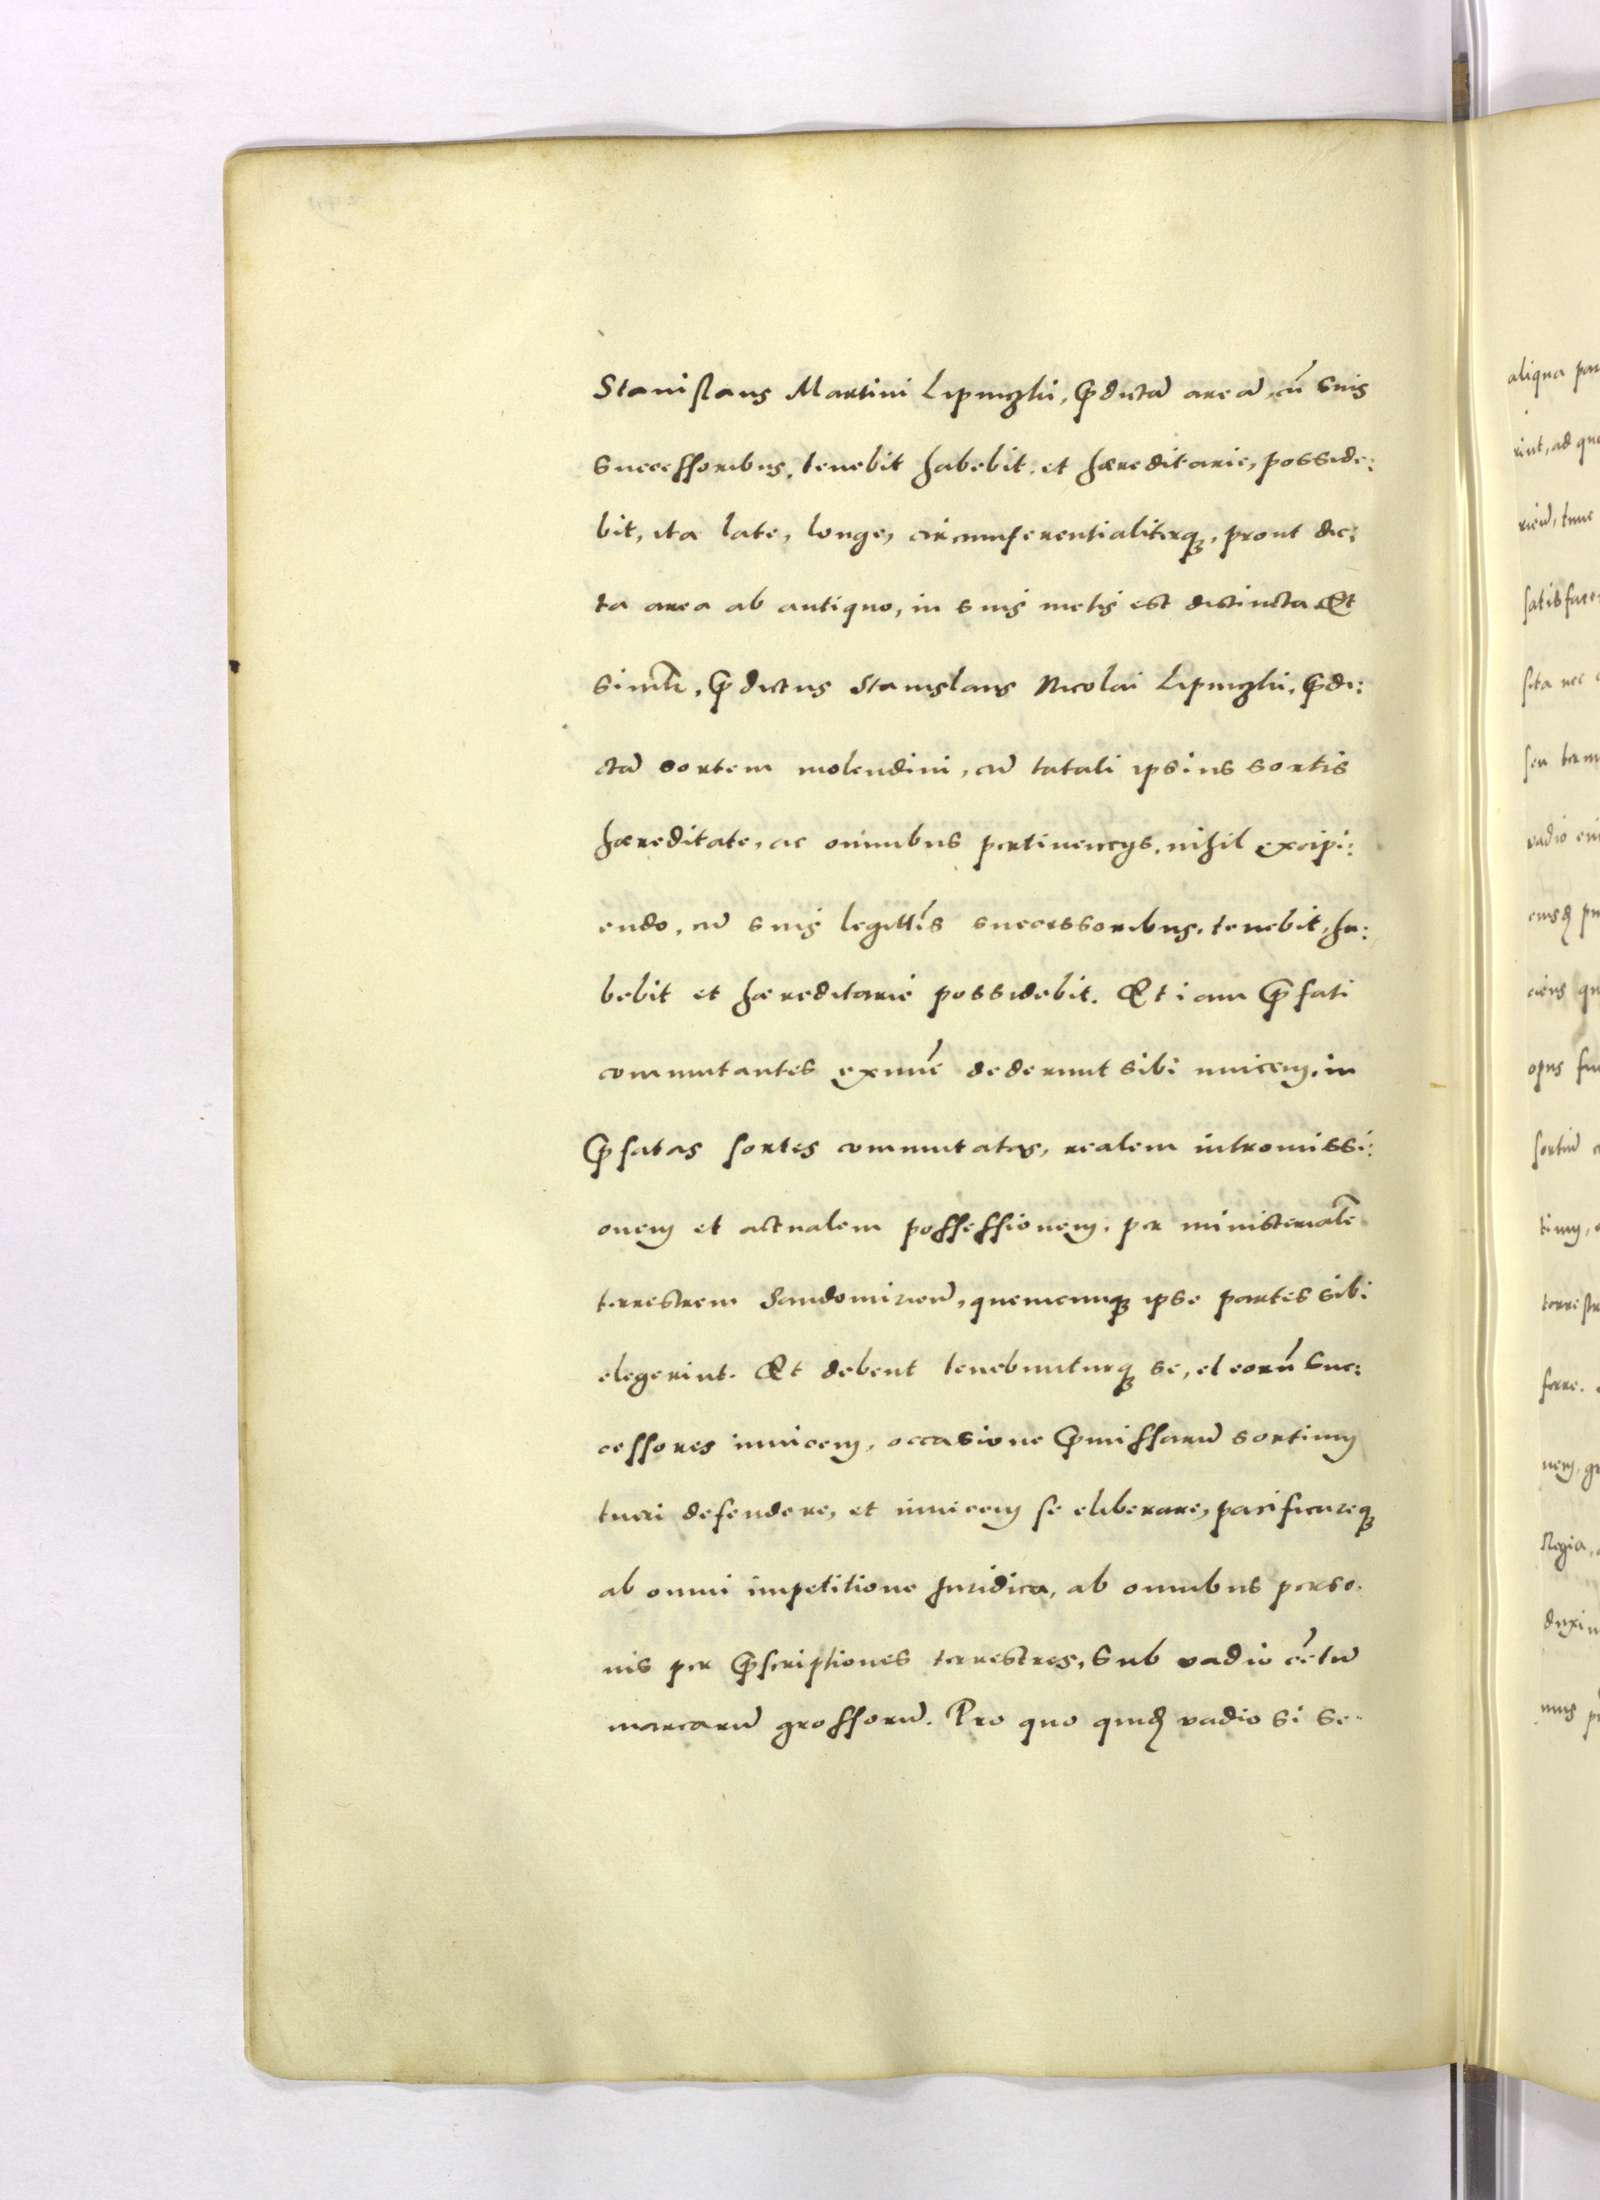 Stanislaus Martini Lipnizki, p̄dictā areā, cū suis
successoribus, tenebit habebit, et hæreditarie, posside:
bit, ita late, longe, circumferentialiterq, prout dic:
ta area ab antiquo, in suis metis est distincta Et
simi͞lr, p̄dictus Stanislaus Nicolai Lipnizki, p̄di:
ctā sortem molendini, cū tatali ipsius sortis
hæreditate, ac omnibus pertinencys, nihil excipi:
endo, cū suis legitt̄is successoribus, tenebit, ha:
bebit et hæreditarie possidebit. Et iam p̄fati
commutantes ex nūc dederunt sibi inuicem, in
p̄fatas sortes commutatas, realem intromissi:
onem et actualem possessionem, per ministerialē
terrestrem Sandomirień, quemcunq ipse partes sibi
elegerint. Et debent tenebunturq se, et eorū Suc:
cessores inuicem, occasione p̄missarū sortium
tueri defendere, et inuicem se eliberare, pacificareq
ab omni impetitione Juridica, ab omnibus perso:
nis per p̄scriptiones terrestres, sub vadio cētū
marcarū grossorū. Pro quo quidē vadio si se
aliqua
rint, ad
rień, tunc
sita nec
seu
vadio
opus
sortiū
ferre.
Regia,